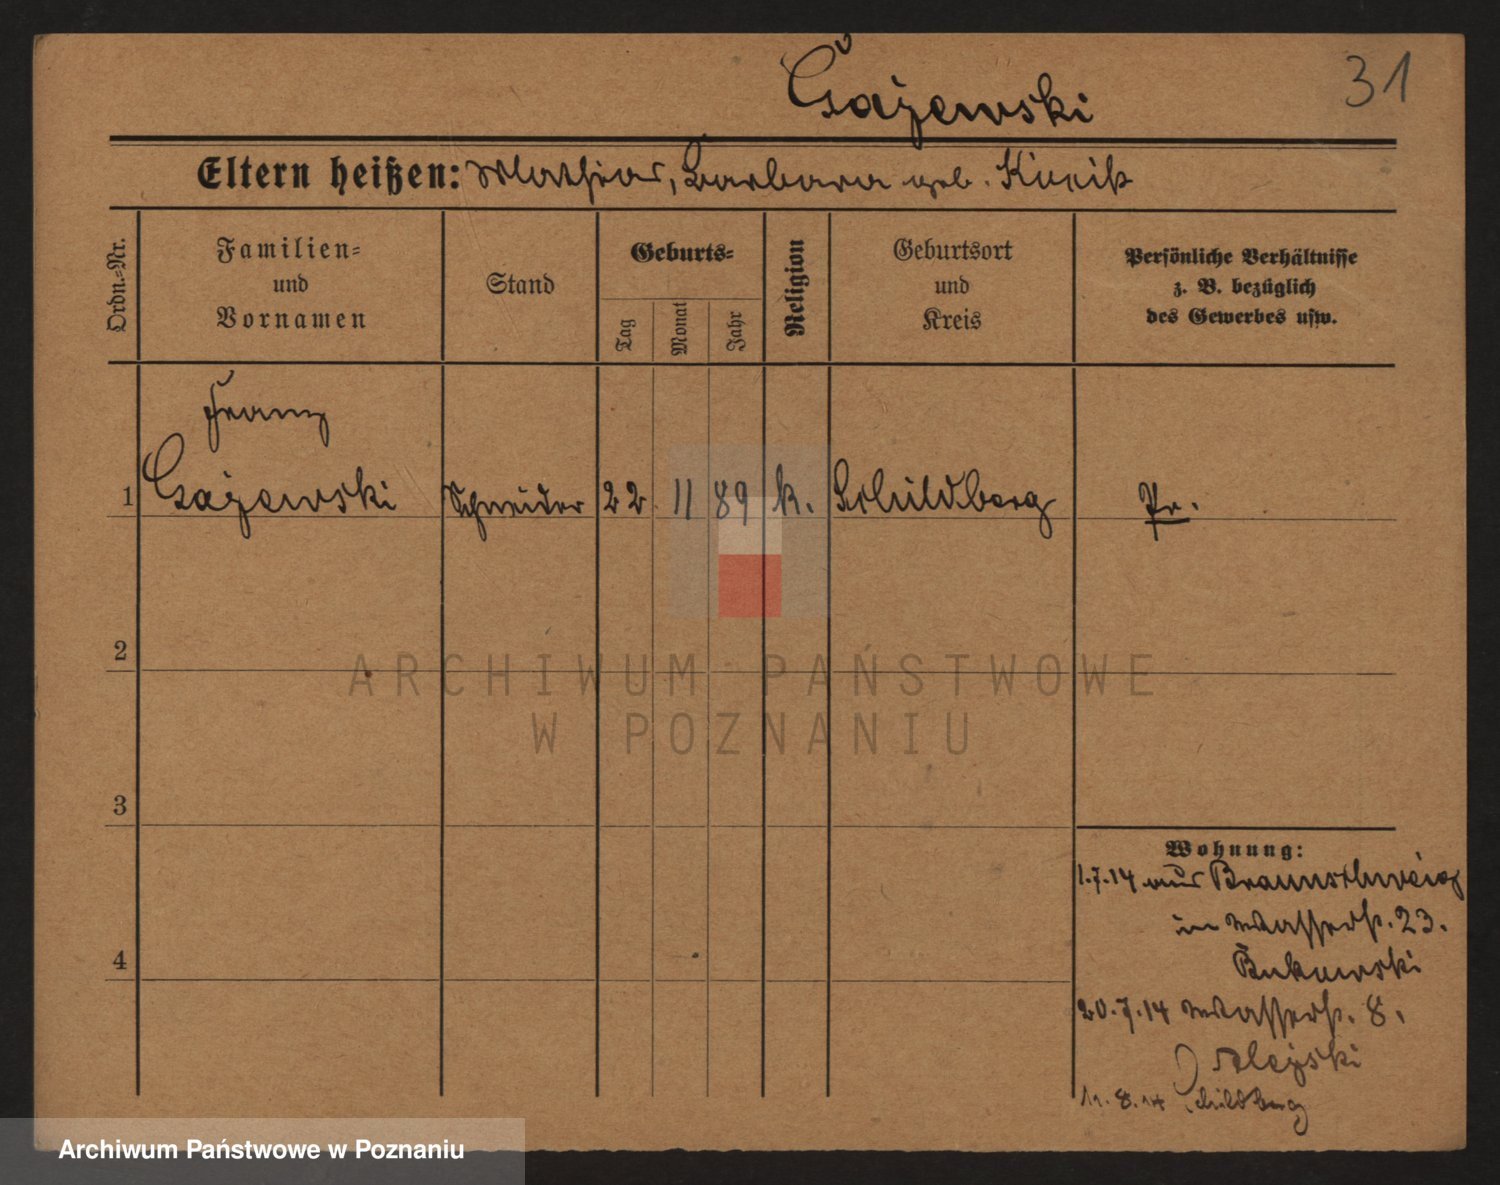 31
Czajewski
Eltern heißen: Mathias, Barbara geb.
Ordn.-Nr.
Familien-
und
Vornamen
Stand
Geburts-
Tag
Monat
Jahr
Religion
Geburtsort
und
Kreis
Persönliche Verhältnisse
z. B. bezüglich
des Gewerbes usw.
Franz
1 Czajewski Schneider 22 11 89 k. Schildberg Pr.
2
ARCHIWUM PAŃSTWOWE
W POZNANIU
3
Wohnung:
1.7.14 aus Braunschweig
in Wasserstr. 23.
Bukowski
4
20.7.14 Wasserstr. 8.
8.14 Schildberg
Archiwum Państwowe w Poznaniu